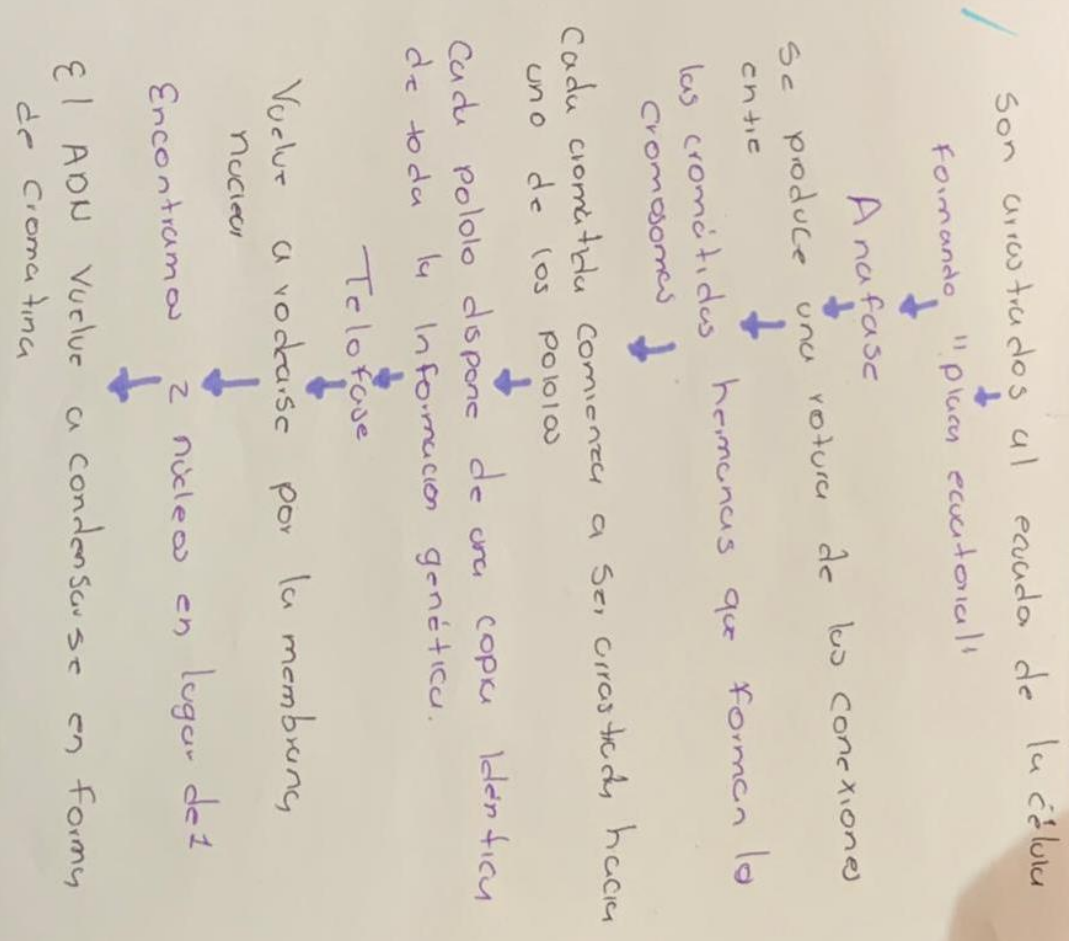 Son arrastrados al ecuada de la célula
Formando "placa ecuatorial"
Anafase
Se produce una rotura de las conexiones
entre
las cromátidas hermanas que forman lo
cromosomas
Cada cromátida comienza a ser arrastrada hacia
uno de los polos
Cada pololo dispone de una copia idéntica
de toda la información genética.
Telofase
Vuelve a rodearse por la membrana
nuclear
Encontramos 2 núcleos en lugar de 1
El ADN Vuelve a condensarse en forma
de cromatina